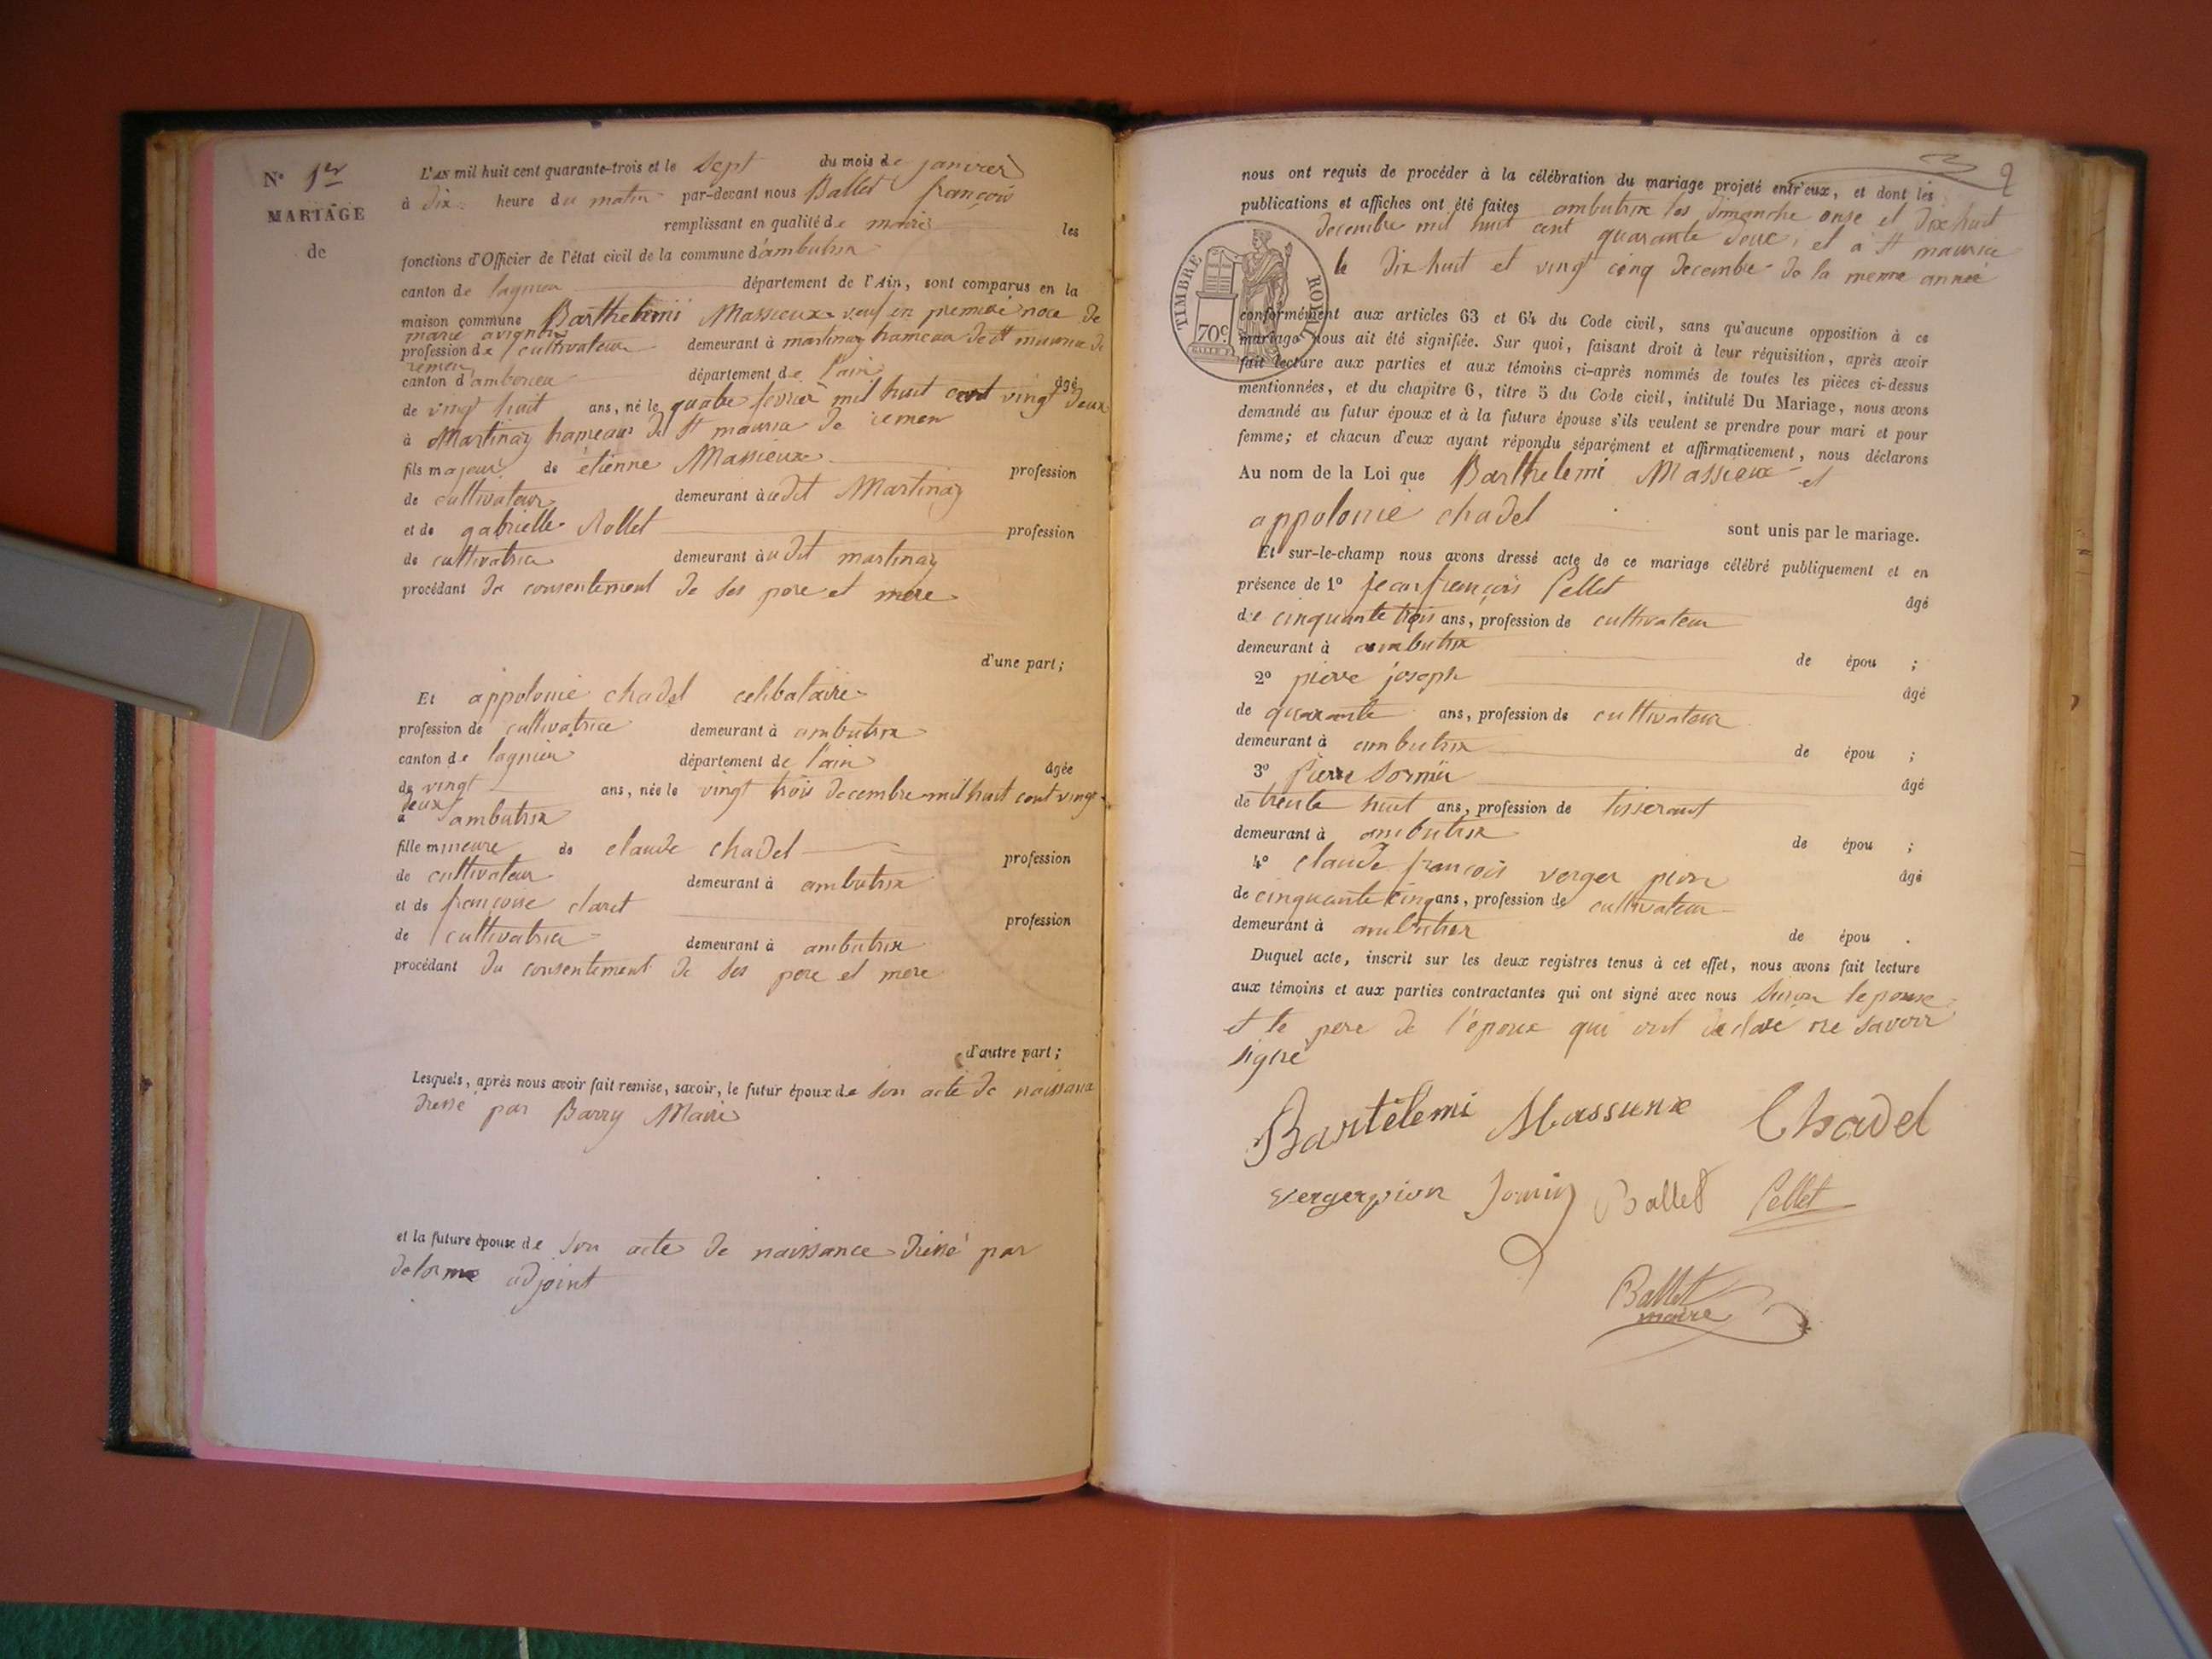 N° 1er
MARIAGE
de
L'AN mil huit cent quarante-trois et le sept du mois de janvier
à dix heure du matin par-devant nous Ballet françois
remplissant en qualité de maire les
fonctions d'Officier de l'état civil de la commune d'ambutrix
canton de lagnieu département de l'Ain, sont comparus en la
maison commune Barthelemi Massieux veuf en premiere noce de
marie avignon
profession de cultivateur demeurant à martinaz hameau de st maurice de
remen
canton d'amberieu département de l'ain âgé
de vingt huit ans, né le quatre fevrier mil huit cent vingt deux
à Martinaz hameau de st maurice de remen
fils majeur de étienne Massieux profession
de cultivateur demeurant à udit Martinaz
et de gabrielle Rollet profession
de cultivatrice demeurant à udit martinaz
procédant du consentement de ses pere et mere
d'une part;
Et appolonie chadel celibataire
profession de cultivatrice demeurant à ambutrix
canton de lagnieu département de l'ain âgée
de vingt ans, née le vingt trois decembre mil huit cent vingt
deux
à ambutrix
fille mineure de claude chadel profession
de cultivateur demeurant à ambutrix
et de françoise claret profession
de cultivatrice demeurant à ambutrix
procédant du consentement de ses pere et mere
d'autre part;
Lesquels, après nous avoir fait remise, savoir, le futur époux de son acte de naissance
dressé par Barry Maire
et la future épouse de son acte de naissance dressé par
delorme adjoint
2
nous ont requis de procéder à la célébration du mariage projeté entr'eux, et dont les
publications et affiches ont été faites ambutrix les dimanche onze et dix huit
decembre mil huit cent quarante deux, et a st maurice
le dix huit et vingt cinq decembre de la meme année
TIMBRE ROYAL
70c
conformément aux articles 63 et 64 du Code civil, sans qu'aucune opposition à ce
mariage nous ait été signifiée. Sur quoi, faisant droit à leur réquisition, après avoir
fait lecture aux parties et aux témoins ci-après nommés de toutes les pièces ci-dessus
mentionnées, et du chapitre 6, titre 5 du Code civil, intitulé Du Mariage, nous avons
demandé au futur époux et à la future épouse s'ils veulent se prendre pour mari et pour
femme; et chacun d'eux ayant répondu séparément et affirmativement, nous déclarons
Au nom de la Loi que Barthelemi Massieux et
appolonie chadel sont unis par le mariage.
Et sur-le-champ nous avons dressé acte de ce mariage célébré publiquement et en
présence de 1° jean françois Pellet âgé
de cinquante trois ans, profession de cultivateur
demeurant à ambutrix de épou ;
2° pierre joseph âgé
de quarante ans, profession de cultivateur
demeurant à ambutrix de épou ;
3° Pierre âgé
de trente huit ans, profession de tisserant
demeurant à ambutrix de épou ;
4° claude françois verger pion âgé
de cinquante cinq ans, profession de cultivateur
demeurant à ambutrix de épou .
Duquel acte, inscrit sur les deux registres tenus à cet effet, nous avons fait lecture
aux témoins et aux parties contractantes qui ont signé avec nous
et le pere de l'epoux qui ont declare ne savoir
signé
Bartelemi Massieux Chadel
vergerpion Ballet Pellet
Ballet
maire